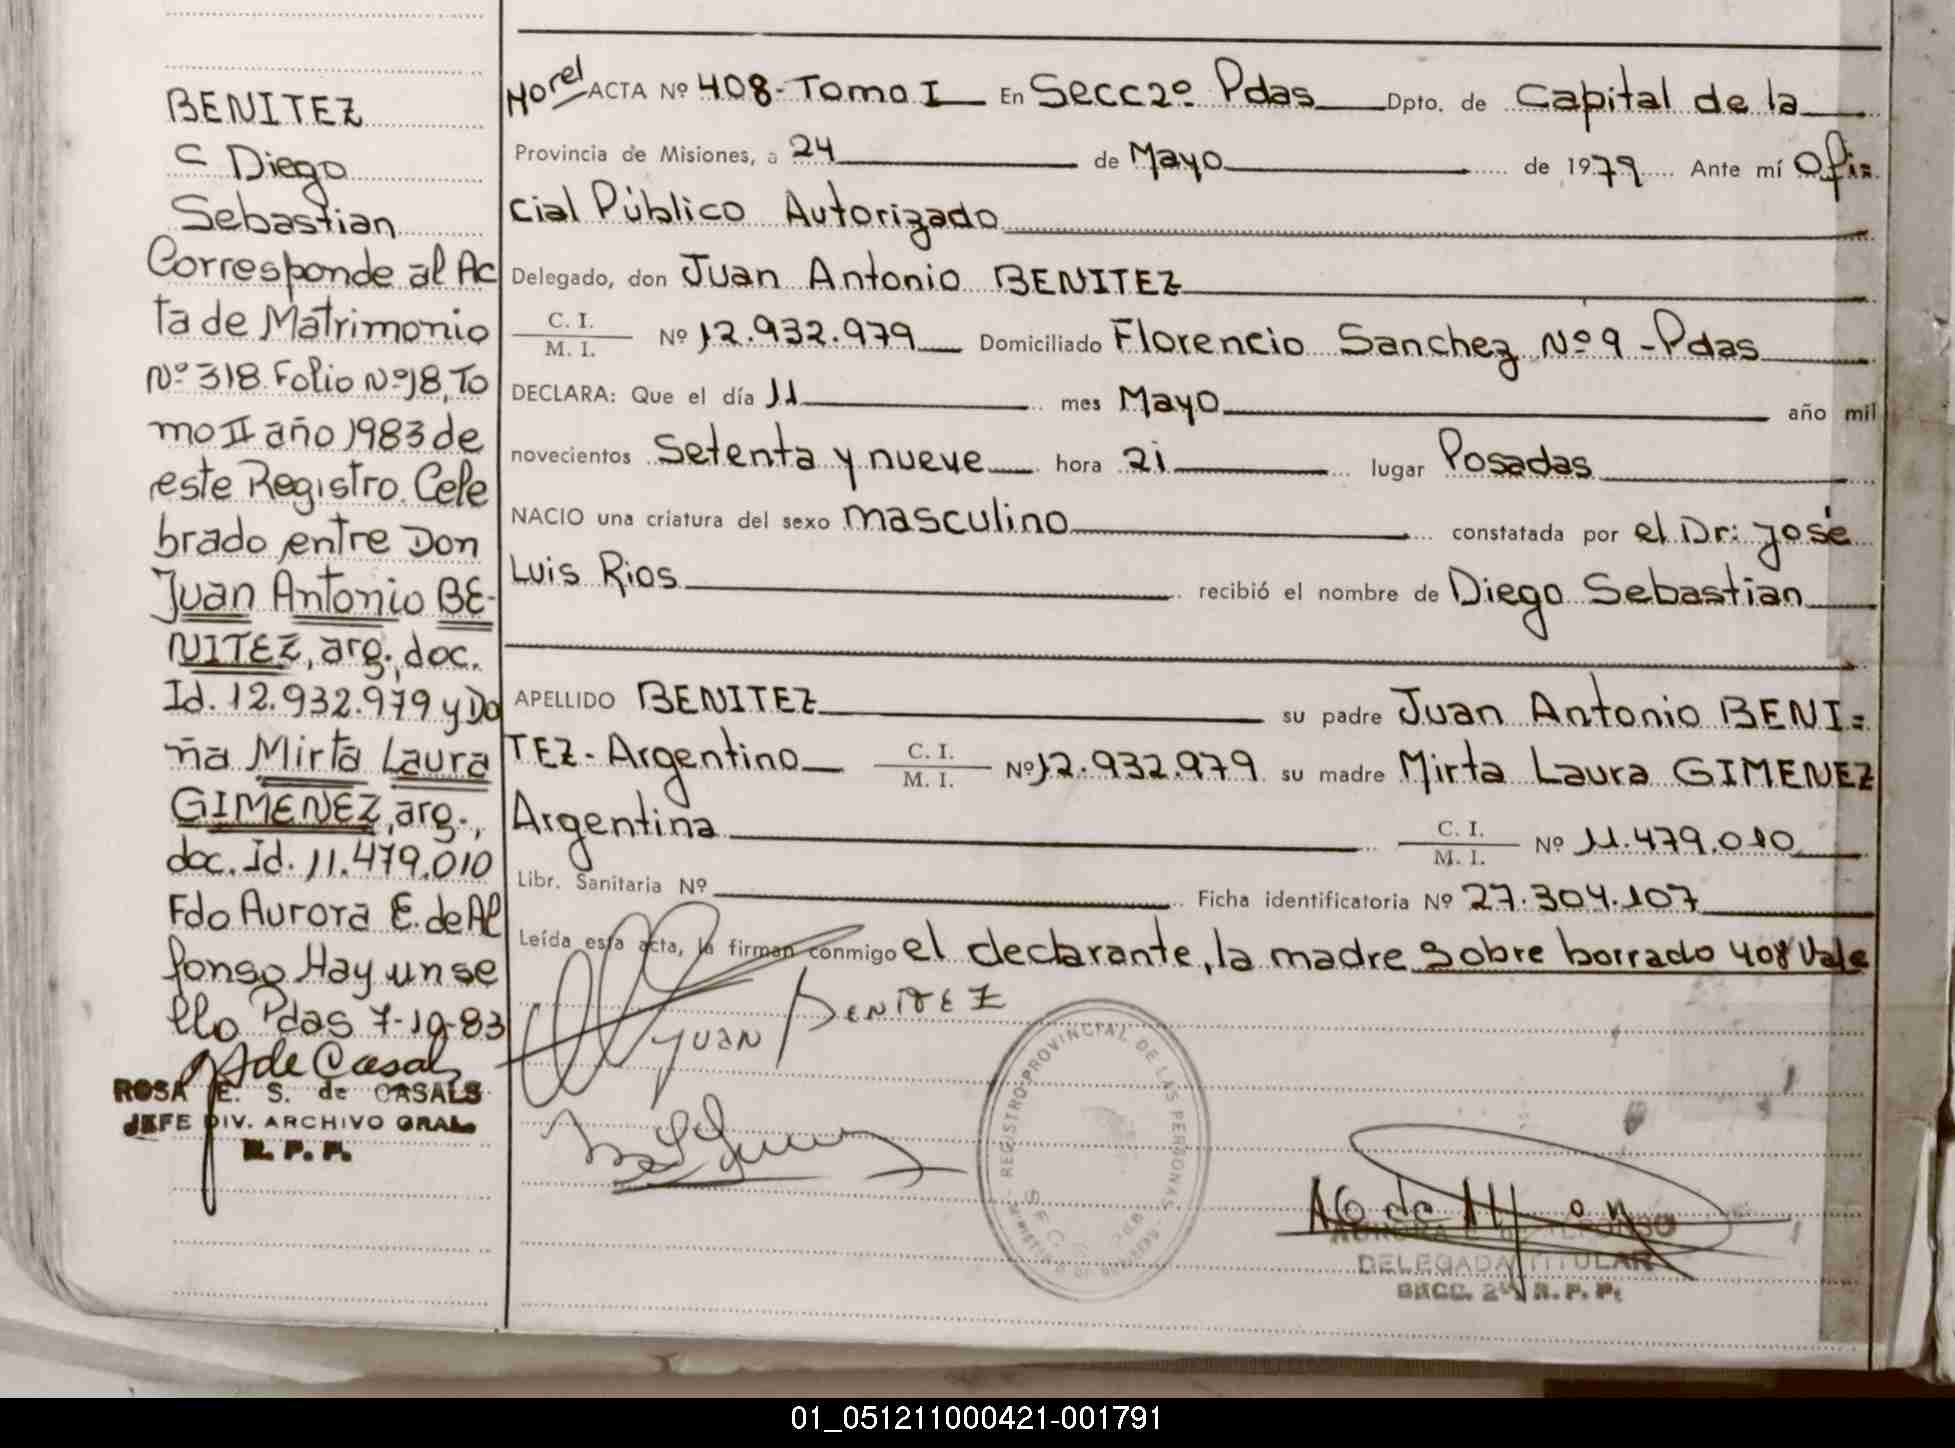 BENITEZ
Diego
Sebastian
Corresponde al Ac
ta de Matrimonio
Nº 318 Folio Nº 18, To
mo II año 1983 de
este Registro. Cele
brado entre Don
Juan Antonio BE-
NITEZ, arg., doc.
Id. 12.932.979 y Do
ña Mirta Laura
GIMENEZ, arg.,
doc. Id. 11.479.010
Fdo Aurora E. de Al
fonso Hay un se
llo Pdas 7-10-83
ROSA E. S. de CASALS
JEFE DIV. ARCHIVO GRAL.
R. P. P.
ACTA Nº 408- Tomo I En Secc 2º Pdas Dpto. de Capital de la
Provincia de Misiones, a 24 de Mayo de 1979 Ante mí Ofi=
cial Público Autorizado
Delegado, don Juan Antonio BENITEZ
C. I.
M. I. Nº 12.932.979 Domiciliado Florencio Sanchez Nº 9 - Pdas
DECLARA: Que el día 11 mes Mayo año mil
novecientos Setenta y nueve hora 21 lugar Posadas
NACIO una criatura del sexo masculino constatada por el Dr: José
Luis Rios recibió el nombre de Diego Sebastian
APELLIDO BENITEZ su padre Juan Antonio BENI=
TEZ - Argentino C. I.
M. I. Nº 12.932.979 su madre Mirta Laura GIMENEZ
Argentina C. I.
M. I. Nº 11.479.010
Libr. Sanitaria Nº Ficha identificatoria Nº 27.304.107
Leída esta acta, la firman conmigo el declarante, la madre Sobre borrado 408 Vale
JUAN BENITEZ
REGISTRO PROVINCIAL DE LAS PERSONAS
AURORA E. de ALFONSO
DELEGADA TITULAR
SECC. 2ª R. P. P.
01_051211000421-001791